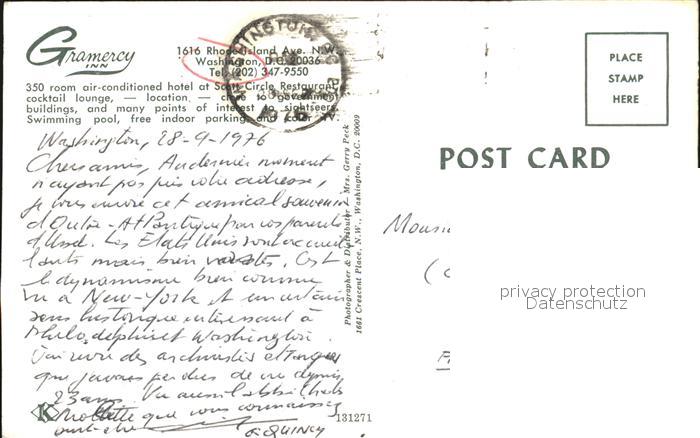 Gramercy
INN
1616 Rhode Island Ave. N.W.
Washington, D.C. 20036
Tel. (202) 347-9550
350 room air-conditioned hotel at Scott Circle Restaurant,
cocktail lounge, — location — close to government
buildings, and many points of interest to sightseers.
Swimming pool, free indoor parking and color TV.
Washington, 28-9-1976
Chers amis, Au dernier moment
n'ayant pas pris votre adresse,
je vous envoie cet amical souvenir
d'Outre-Atlantique par vos parents
d'Ussel. Les États Unis sont
mais bien vastes. C'est
le dynamisme bien comme
vu à New-York et un certain
sens historique intéressant à
Philadelphie et Washington.
J'ai revu des archivistes étrangers
que j'avais perdus de vue depuis
23 ans. Vu aussi
que vous connaissez
peut-être
G. QUINCY
131271
Photographer & Distributor - Mrs. Gerry Peck
1661 Crescent Place, N.W., Washington, D.C. 20009
PLACE
STAMP
HERE
POST CARD
privacy protection
Datenschutz